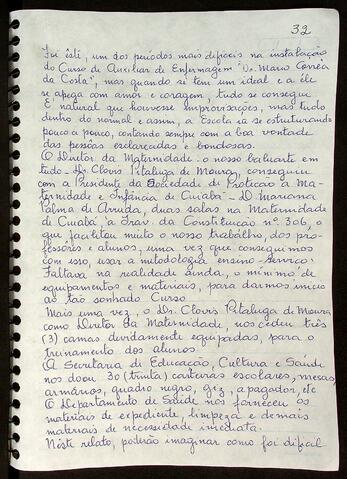 32
Foi êste, um dos períodos mais difíceis na instalação
do Curso de Auxiliar de Enfermagem "Dr. Mario Corrêa
da Costa", mas quando si tem um ideal e a êle
se apega com amor e coragem, tudo se consegue
E' natural que houvesse improvisações, mas tudo
dentro do normal e assim, a Escola ia se estruturando
pouco a pouco, contando sempre com a boa vontade
das pessôas esclarecidas e bondosas.
O Diretor da Maternidade - o nosso baluarte em
tudo - Dr. Clovis Pitaluga de Moura, conseguiu
com a Presidente da Sociedade de Proteção a Ma-
ternidade e Infância de Cuiabá - D. Mariana
Palma de Arruda, duas salas na Maternidade
de Cuiabá, à Trav. da Constituição nº 306, o
que facilitou muito o nosso trabalho, dos pro-
fessôres e alunos, uma vez que, conseguimos
com isso, usar a metodologia ensino-serviço.
Faltava na realidade ainda, o mínimo de
equipamentos e materiais, para darmos início
ao tão sonhado Curso
Mais uma vez, o Dr. Clovis Pitaluga de Moura
como Diretor da Maternidade, nos cedeu três
(3) camas devidamente equipadas, para o
treinamento dos alunos.
A Secretaria de Educação, Cultura e Saúde
nos doou 30 (trinta) carteiras escolares, mesas
armários, quadro negro, giz, apagador, etc
O Departamento de Saúde nos forneceu os
materiais de expediente, limpeza e demais
materiais de necessidade imediata.
Nêste relato, poderão imaginar como foi difícil